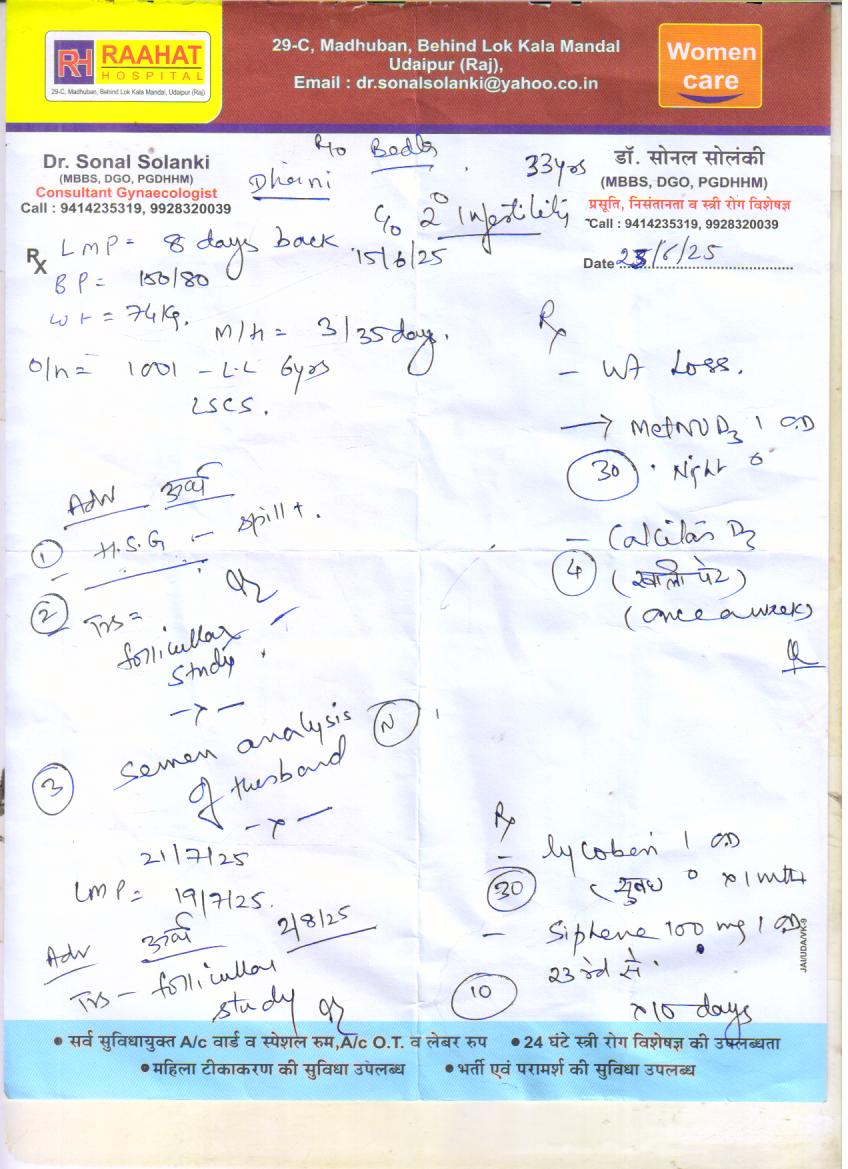 RH RAAHAT
HOSPITAL
29-C, Madhuban, Behind Lok Kala Mandal, Udaipur (Raj)
29-C, Madhuban, Behind Lok Kala Mandal
Udaipur (Raj),
Email : dr.sonalsolanki@yahoo.co.in
Women
care
Dr. Sonal Solanki
(MBBS, DGO, PGDHHM)
Consultant Gynaecologist
Call : 9414235319, 9928320039
R/o Badla
33yrs
C/o 2° Infertility
डॉ. सोनल सोलंकी
(MBBS, DGO, PGDHHM)
प्रसूति, निसंतानता व स्त्री रोग विशेषज्ञ
Call : 9414235319, 9928320039
Date 23/6/25
Rx LMP = 8 days back 15/6/25
BP = 150/80
wt = 74Kg.
M/H = 3/35 days.
O/H = 1001 - L.C 6yrs
LSCS.
Rx
- Wt Loss.
→ MetNU D3 1 OD
30 Night
- Calcitas D3
4 (खाली पेट)
(once a week)
Adv
1 H.S.G - spill +.
2 TVS =
follicular
study.
-x-
3 Semen analysis N
of Husband
-x-
21/7/25
LMP = 19/7/25.
Adv 2/8/25
TVS - follicular
study
Rx
- lycoben 1 OD
30 (सुबह x 1 mth
- Siphene 100 mg 1 OD
23 से.
10 x 10 days
JAI/UDA/VK-9
• सर्व सुविधायुक्त A/c वार्ड व स्पेशल रुम,A/c O.T. व लेबर रुप • 24 घंटे स्त्री रोग विशेषज्ञ की उपलब्धता
• महिला टीकाकरण की सुविधा उपलब्ध • भर्ती एवं परामर्श की सुविधा उपलब्ध